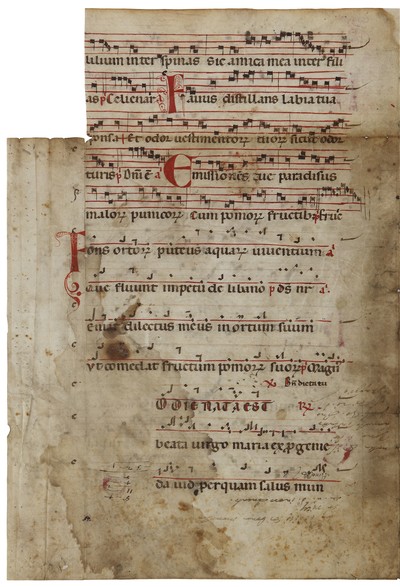 lilium inter spinas sic amica mea inter fili
as p̃ Celi enar a Fauus distillans labia tua
onsa Et odor uestimentorꝝ tuorꝝ sicut odor
turis p̃ Dm̃ E a Emissiones tue paradisus
malorꝝ punicorꝝ Cum pomorꝝ fructibꝫ
Fons ortorꝝ puteus aquarꝝ uiuentium a
que fluunt impetu de libano p̃ ds nr a
eniat dilectus meus in ortum suum
vt comedat fructum pomorꝝ suorꝝ
Bñdictꝰ
ODIE NATA EST
beata uirgo maria ex progenie
dauid per quam salus mun